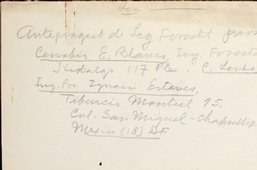 Anteproyecto d Ley Forestal para
Cenobio E. Blanco, Ing. Foresta
Hidalgo 117 Pte.
Ing. For. Ignacio Esteves,
Tiburcio Montiel 95.
Col. San Miguel - Chapultep
Mexico (18) DF